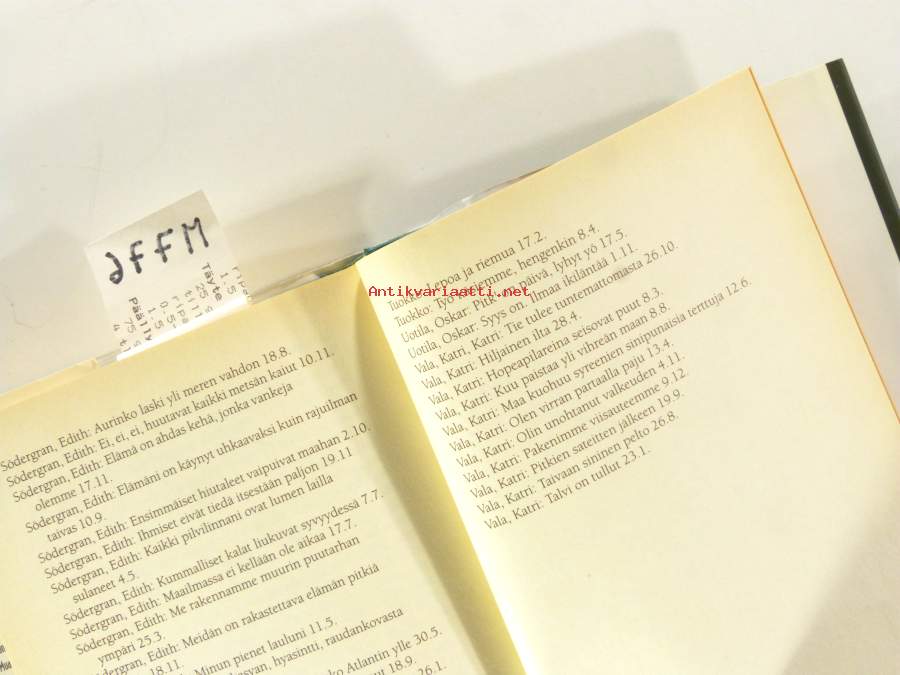 affM
Täyte
25
1.5
Päälly
75
Södergran, Edith: Aurinko laski yli meren vahdon 18.8.
Södergran, Edith: Ei, ei, ei, huutavat kaikki metsän kaiut 10.11.
Södergran, Edith: Elämä on ahdas kehä, jonka vankeja
olemme 17.11.
Södergran, Edith: Elämäni on käynyt uhkaavaksi kuin rajuilman
taivas 10.9.
Södergran, Edith: Ensimmäiset hiutaleet vaipuivat maahan 2.10.
Södergran, Edith: Ihmiset eivät tiedä itsestään paljon 19.11
Södergran, Edith: Kaikki pilvilinnani ovat lumen lailla
sulaneet 4.5.
Södergran, Edith: Kummalliset kalat liukuvat syvyydessä 7.7.
Södergran, Edith: Maailmassa ei kellään ole aikaa 17.7.
Södergran, Edith: Me rakennamme muurin puutarhan
ympäri 25.3.
Södergran, Edith: Meidän on rakastettava elämän pitkiä
18.11.
Minun pienet lauluni 11.5.
hyasintti, raudankovasta
Atlantin ylle 30.5.
18.9.
26.1.
Tuokko: Lepoa ja riemua 17.2.
Tuokko: Työ olemme, hengenkin 8.4.
Uotila, Oskar: Pitkä on päivä, lyhyt yö 17.5.
Uotila, Oskar: Syys on. Ilmaa ikiläntää 1.11.
Vala, Katri, Katri: Tie tulee tuntemattomasta 26.10.
Vala, Katri: Hiljainen ilta 28.4.
Vala, Katri: Hopeapilareina seisovat puut 8.3.
Vala, Katri: Kuu paistaa yli vihreän maan 8.8.
Vala, Katri: Maa kuohuu syreenien sinipunaisia terttuja 12.6.
Vala, Katri: Olen virran partaalla paju 13.4.
Vala, Katri: Olin unohtanut valkeuden 4.11.
Vala, Katri: Pakenimme viisauteemme 9.12.
Vala, Katri: Pitkien sateitten jälkeen 19.9.
Vala, Katri: Taivaan sininen pelto 26.8.
Vala, Katri: Talvi on tullut 23.1.
Antikvariaatti.net